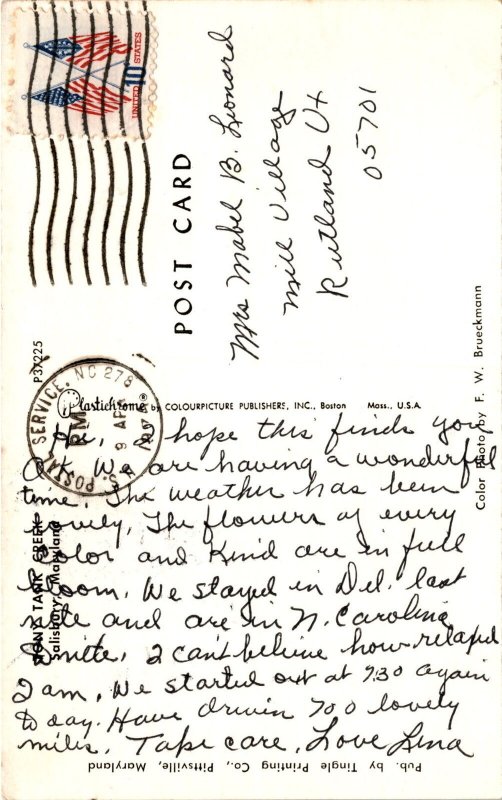 UNITED STATES
10
U.S. POSTAL SERVICE, NC 278
PM
9 APR
POST CARD
Mrs Mabel B. Leonard
Mill Village
Rutland Vt
05701
P37225
Plastichrome® by COLOURPICTURE PUBLISHERS, INC., Boston Mass., U.S.A.
Color Photo by F. W. Brueckmann
TONY TANK CREEK
Salisbury, Maryland
Hi, hope this finds you
O.K. We are having a wonderful
time. The weather has been
lovely, The flowers of every
color and kind are in full
bloom. We stayed in Del. last
nite and are in N. Carolina
tonite. I can't believe how relaxed
I am. We started out at 7:30 again
to day. Have driven 700 lovely
miles. Take care, Love Lena
Pub. by Tingle Printing Co., Pittsville, Maryland